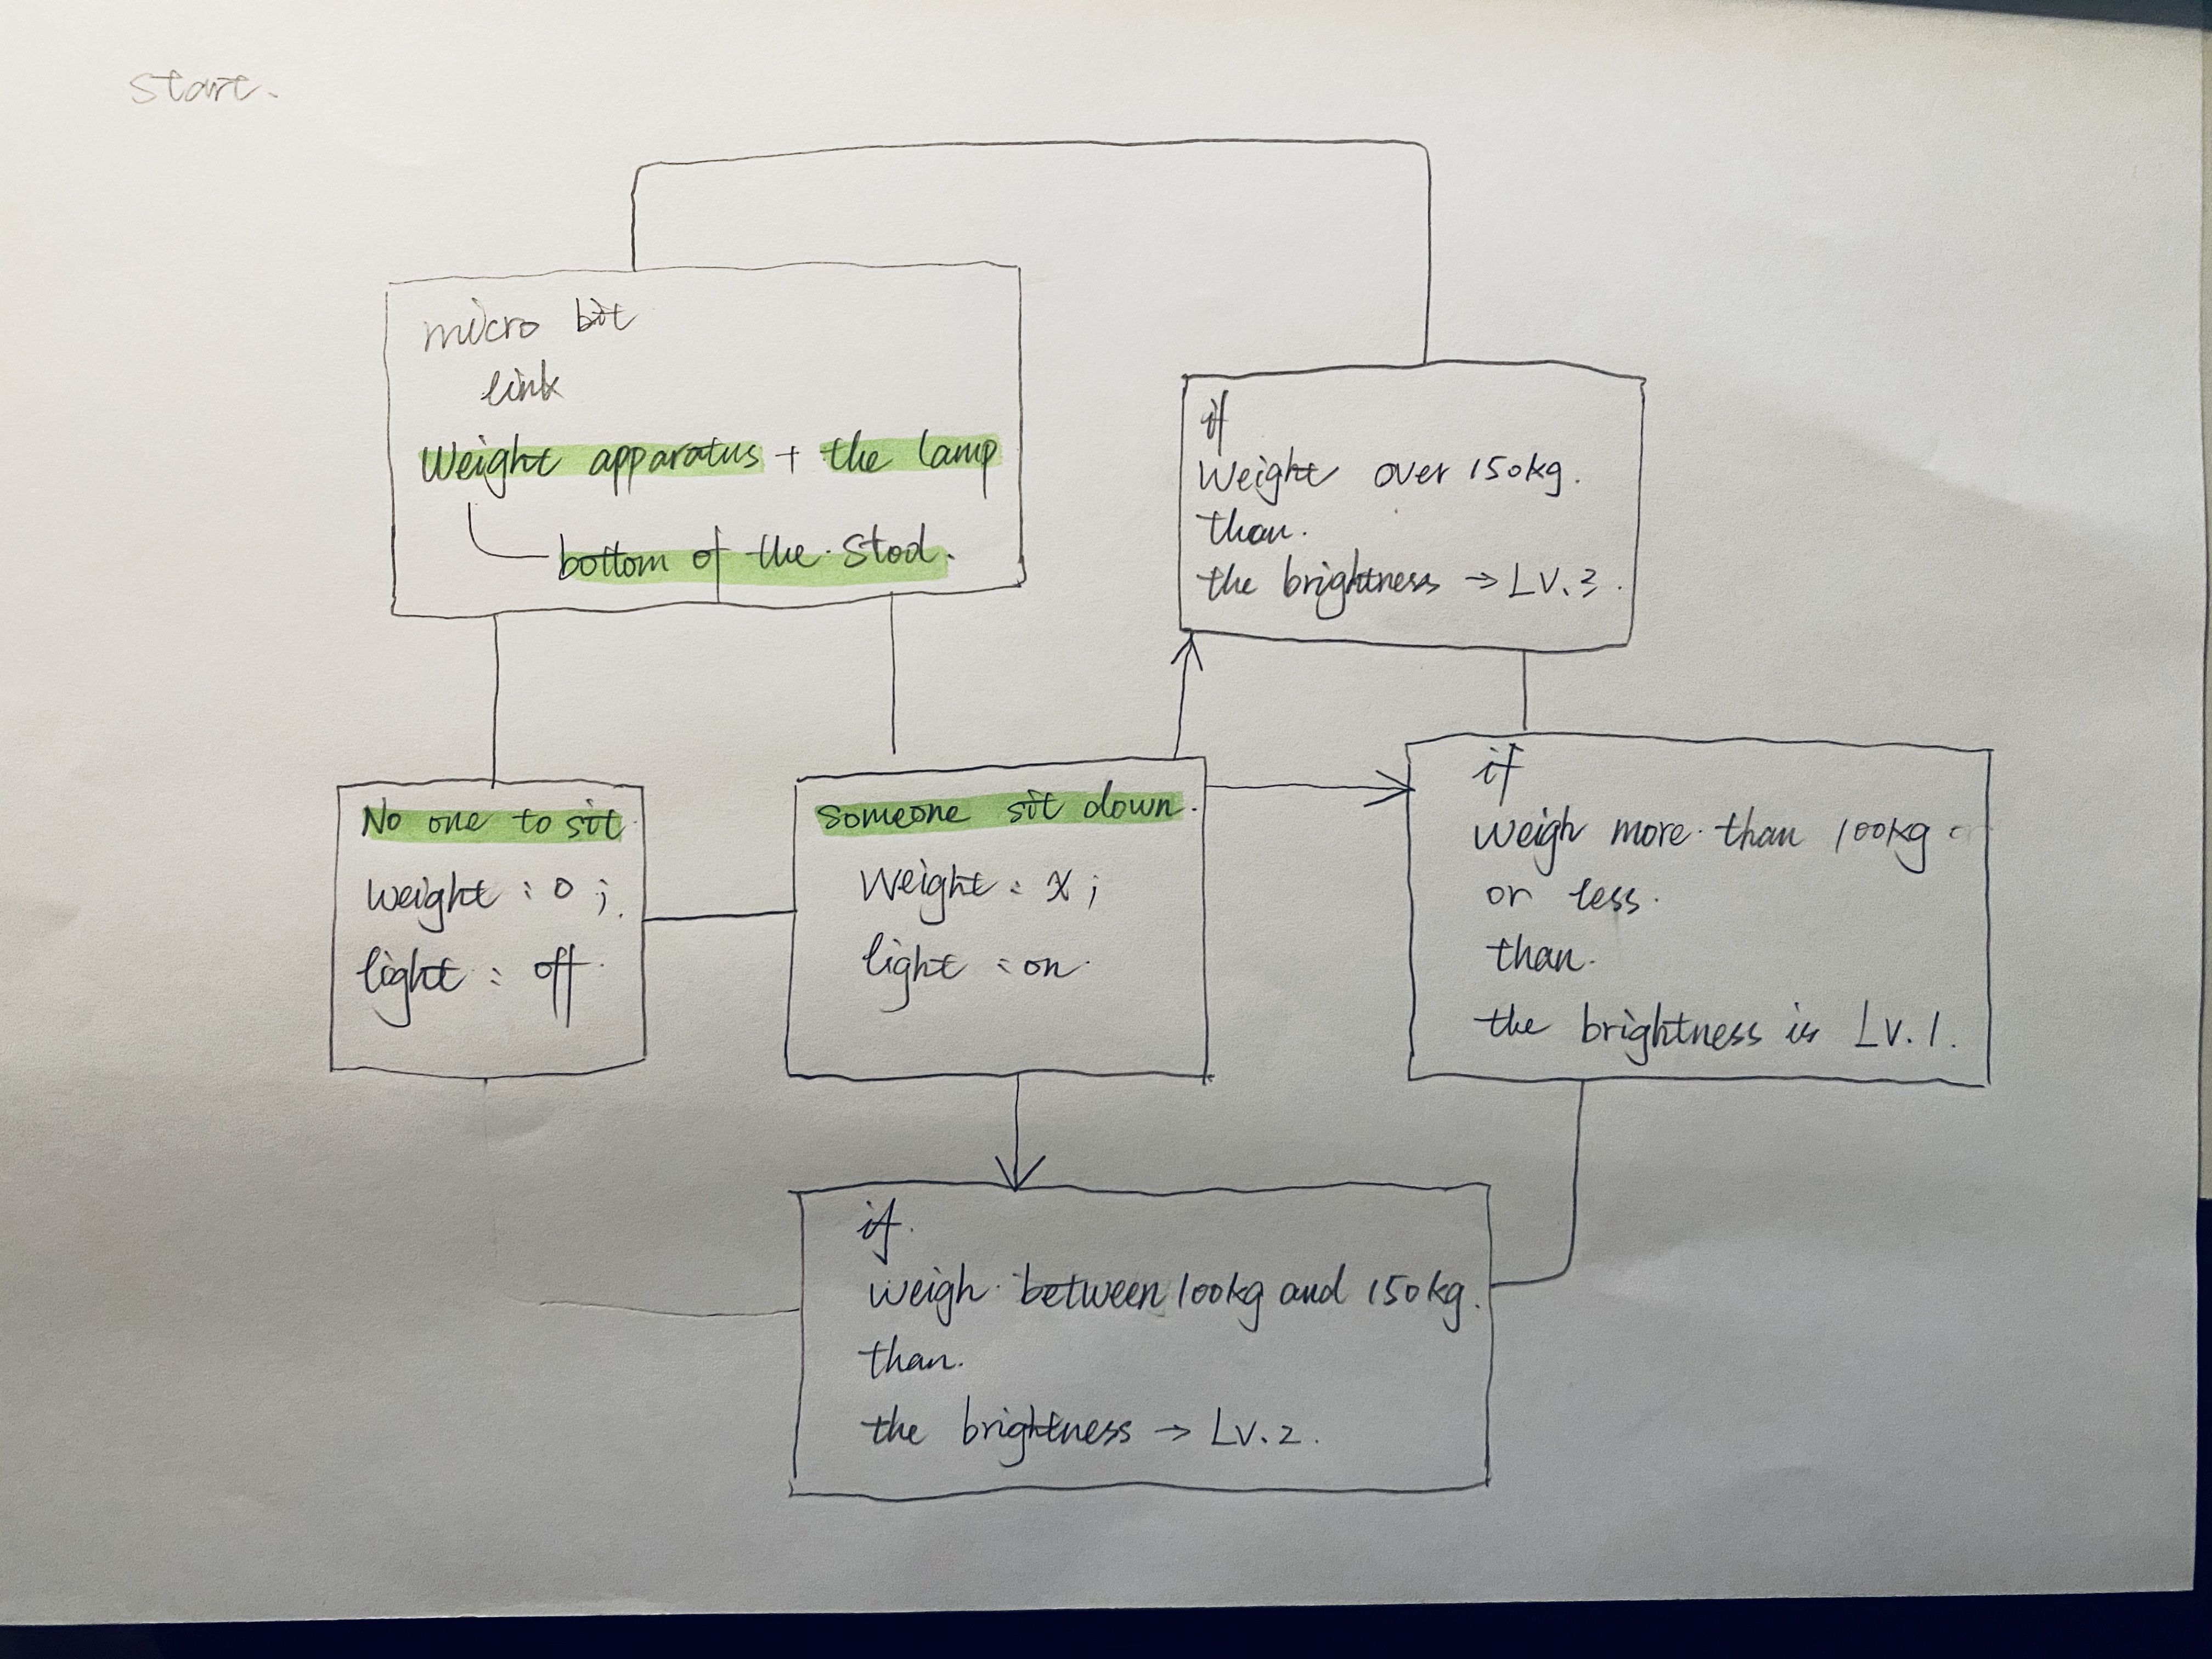 start.
micro bit
link
Weight apparatus + the lamp
bottom of the stool.
if
Weight over 150kg.
than.
the brightness → LV.3.
No one to sit
weight : 0 ;
light : off
someone sit down.
Weight : x ;
light : on
if
weigh more than 100kg
or less.
than.
the brightness is LV.1.
if.
weigh between 100kg and 150kg.
than.
the brightness → LV.2.